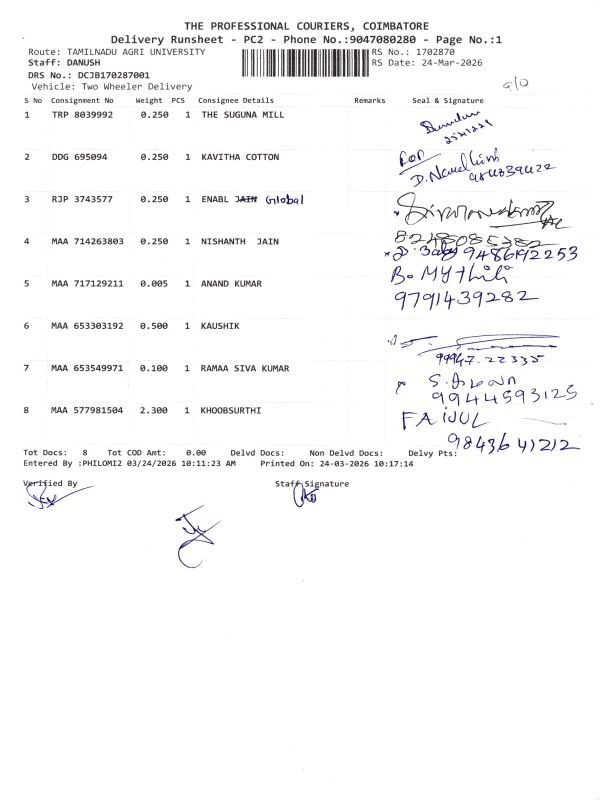 THE PROFESSIONAL COURIERS, COIMBATORE
Delivery Runsheet - PC2 - Phone No.:9047080280 - Page No.:1
Route: TAMILNADU AGRI UNIVERSITY RS No.: 1702870
Staff: DANUSH RS Date: 24-Mar-2026
DRS No.: DCJB170287001
Vehicle: Two Wheeler Delivery
S No Consignment No Weight PCS Consignee Details Remarks Seal & Signature
1 TRP 8039992 0.250 1 THE SUGUNA MILL
2 DDG 695094 0.250 1 KAVITHA COTTON
3 RJP 3743577 0.250 1 ENABL JAIN Global
4 MAA 714263803 0.250 1 NISHANTH JAIN 9486192253
5 MAA 717129211 0.005 1 ANAND KUMAR B. MYthili
9791439282
6 MAA 653303192 0.500 1 KAUSHIK
99947-22335
7 MAA 653549971 0.100 1 RAMAA SIVA KUMAR
9944593125
8 MAA 577981504 2.300 1 KHOOBSURTHI FAIJUL
9843641212
Tot Docs: 8 Tot COD Amt: 0.00 Delvd Docs: Non Delvd Docs: Delvy Pts:
Entered By :PHILOMI2 03/24/2026 10:11:23 AM Printed On: 24-03-2026 10:17:14
Verified By Staff Signature